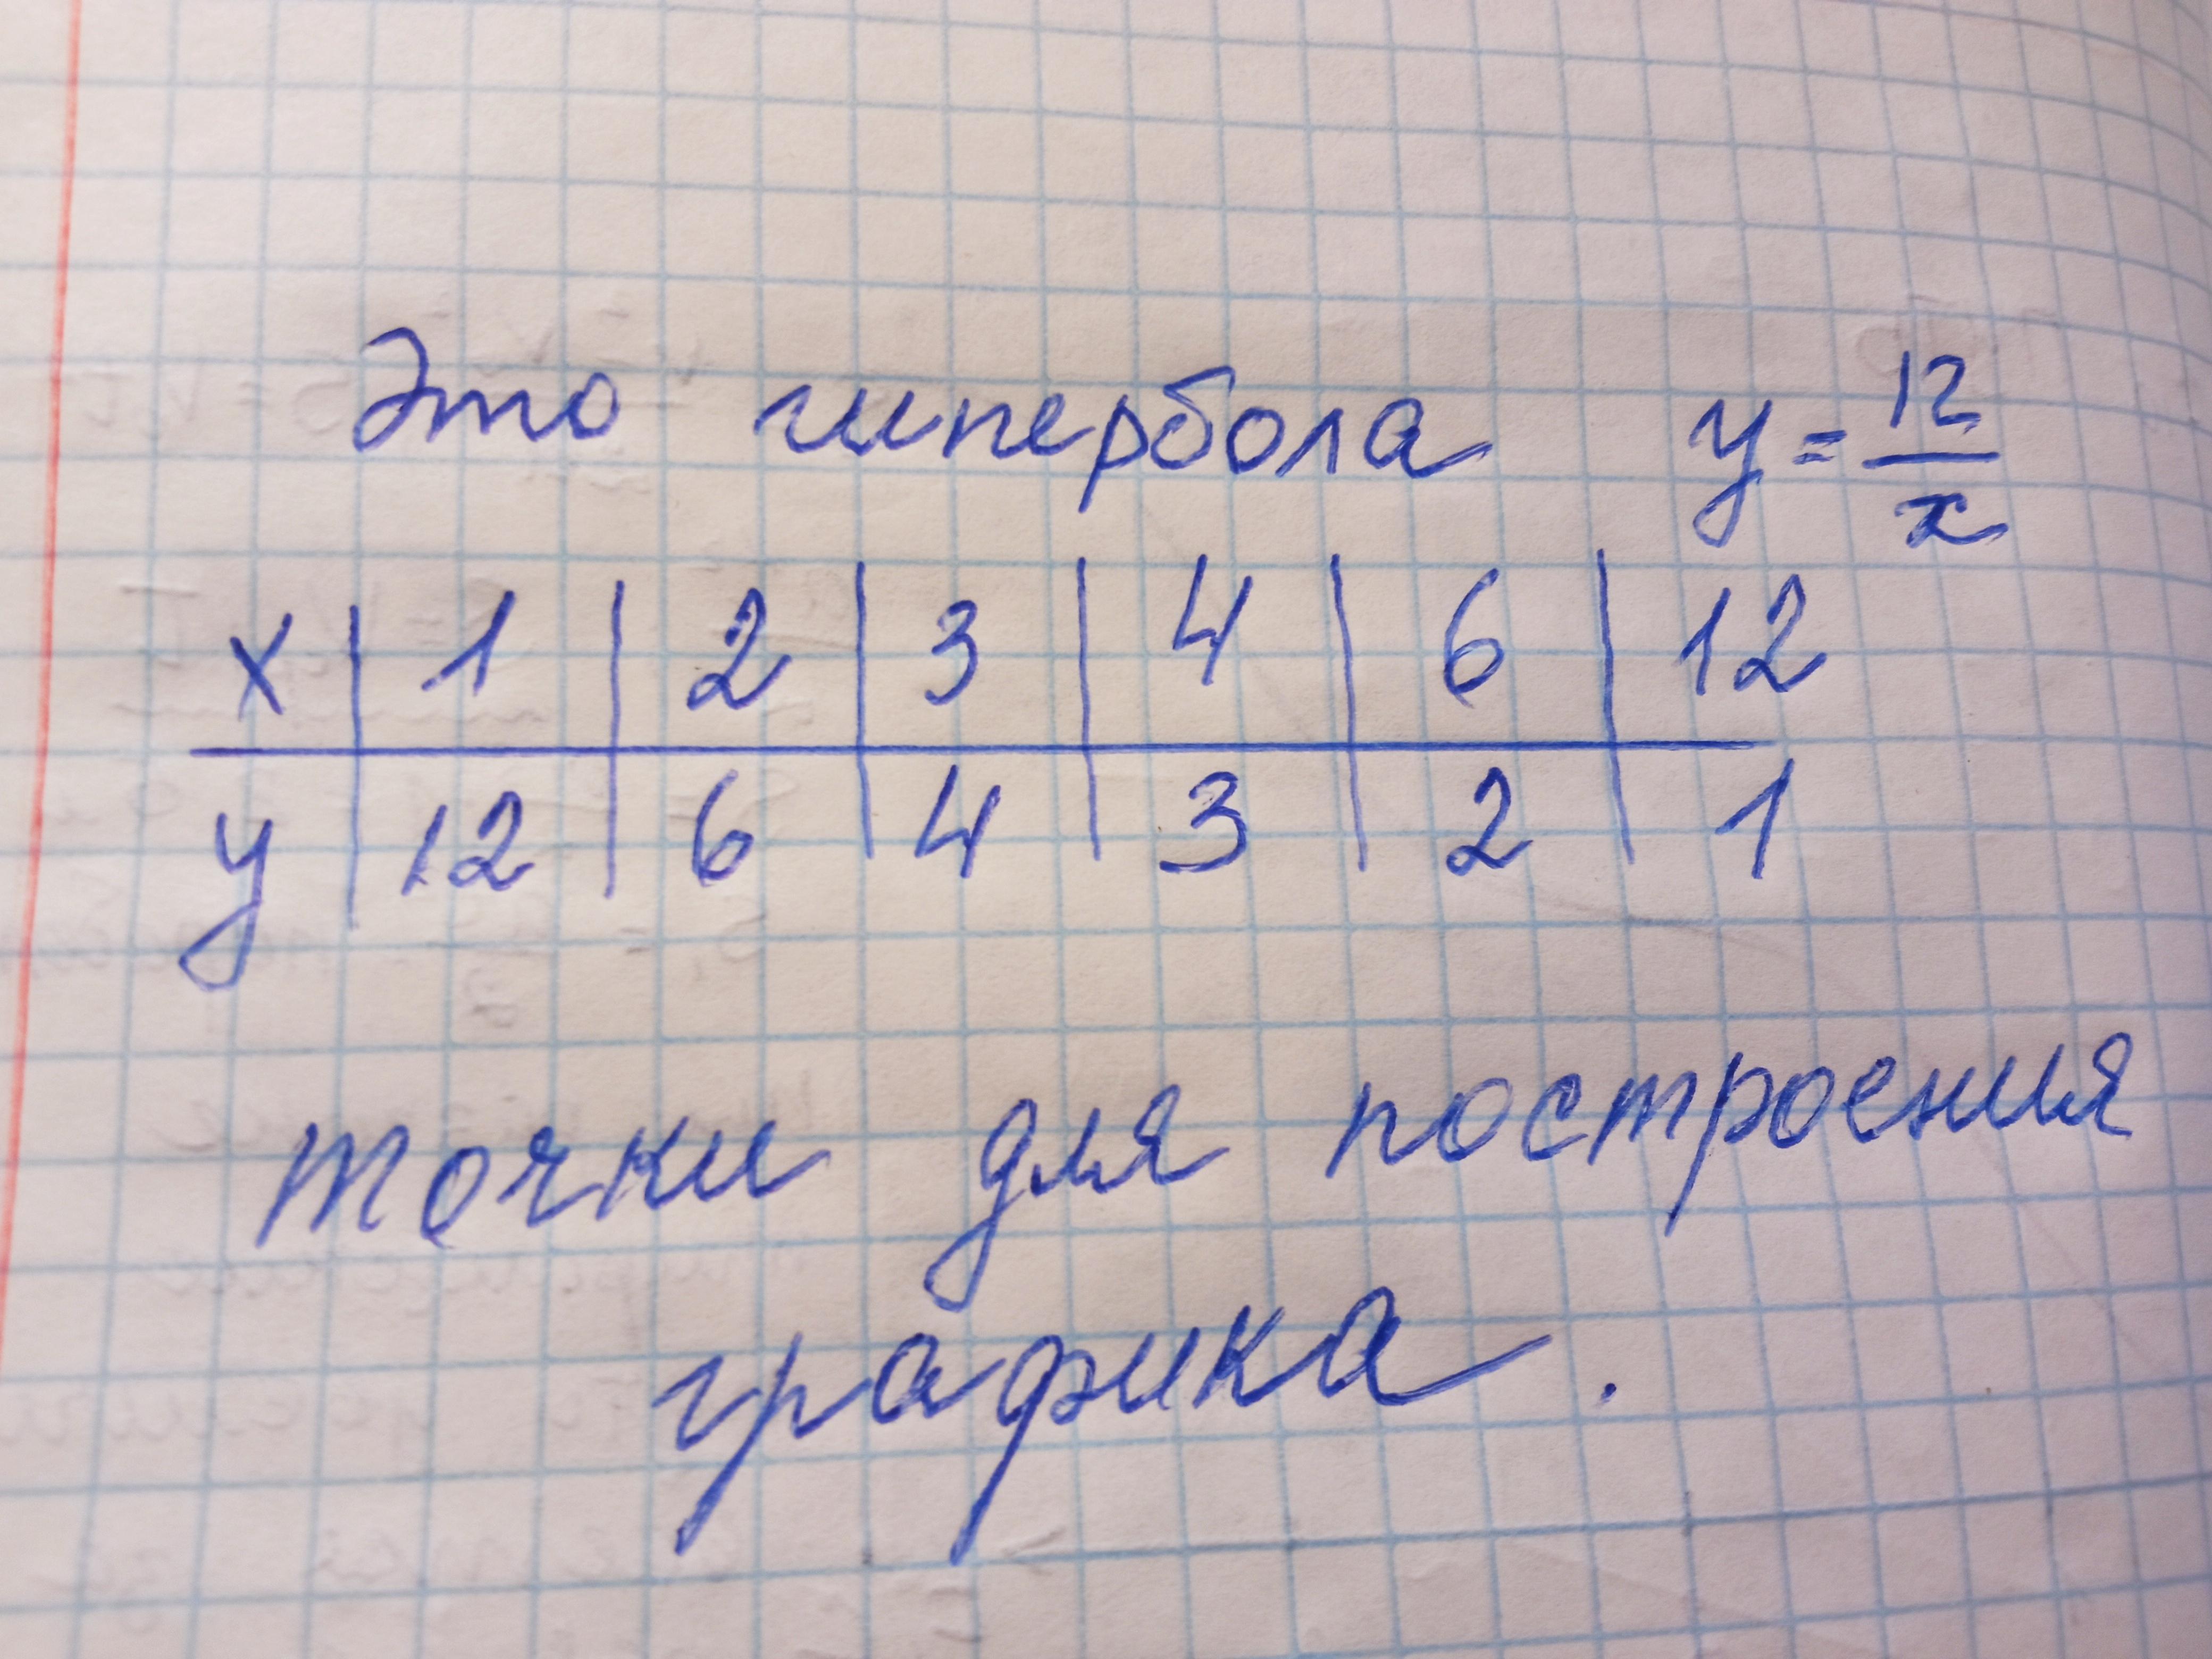 Это гипербола y = 12/x
x | 1 | 2 | 3 | 4 | 6 | 12
y | 12 | 6 | 4 | 3 | 2 | 1
точки для построения
графика.